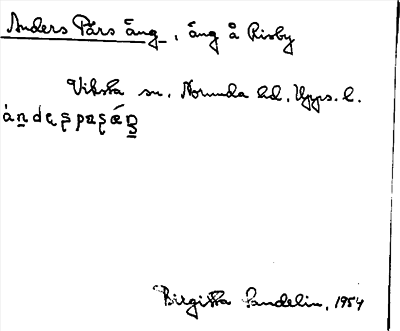 Anders Pärs äng, äng å Risby
Viksta sn. Norunda hd. Upps. l.
Birgitta Sandelin, 1954